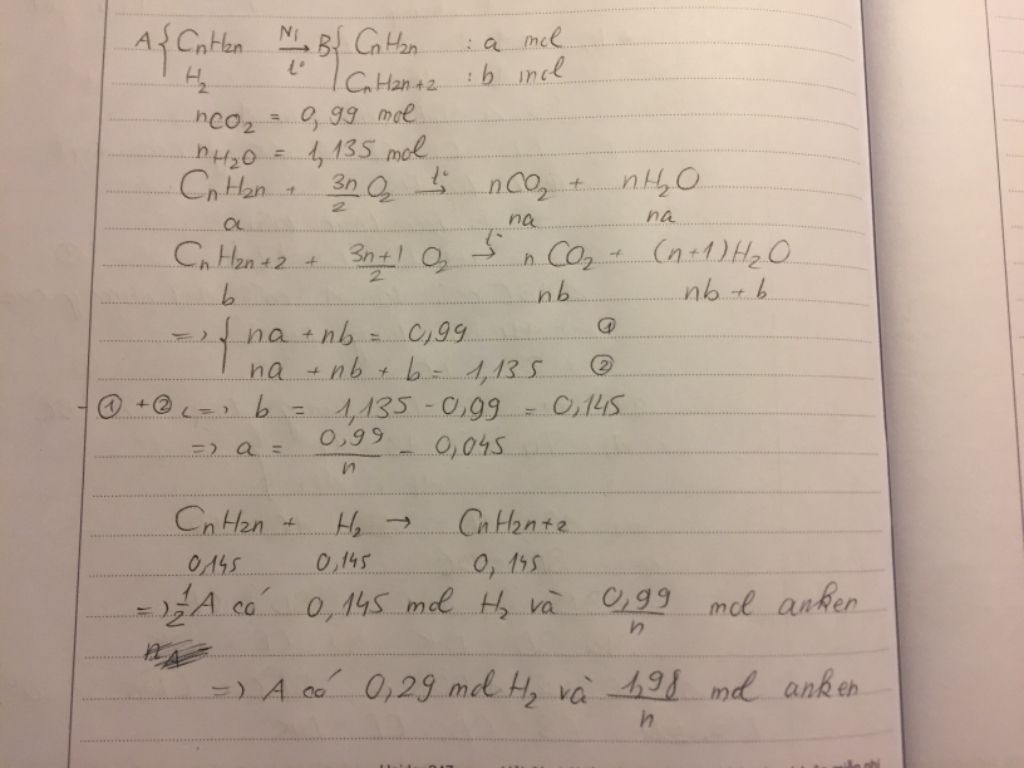 A { CnH2n Ni→t° B { CnH2n : a mol
H2 CnH2n+2 : b mol
nCO2 = 0,99 mol
nH2O = 1,135 mol
CnH2n + 3n/2 O2 t°→ nCO2 + nH2O
a na na
CnH2n+2 + 3n+1/2 O2 t°→ nCO2 + (n+1)H2O
b nb nb + b
=> { na + nb = 0,99 ①
na + nb + b = 1,135 ②
① + ② <=> b = 1,135 - 0,99 = 0,145
=> a = 0,99/n - 0,045
CnH2n + H2 → CnH2n+2
0,145 0,145 0,145
=> 1/2 A có 0,145 mol H2 và 0,99/n mol anken
=> A có 0,29 mol H2 và 1,98/n mol anken